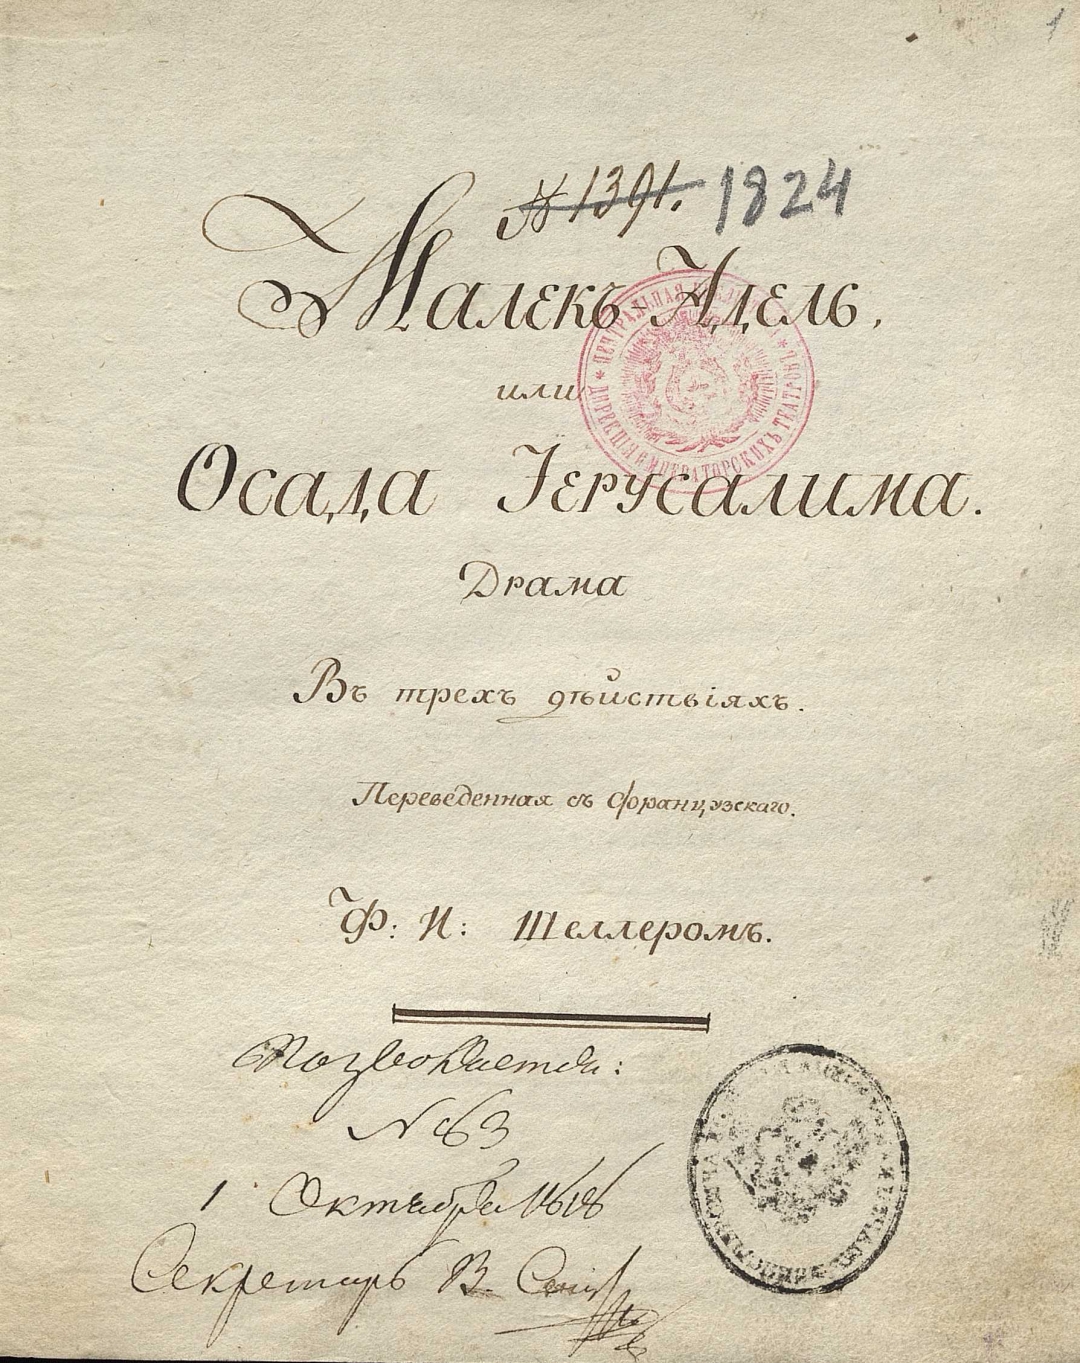 1
№ 1391. 1824
Малекъ-Адель,
или
Осада Іерусалима.
Драма
Въ трехъ дѣйствіяхъ.
Переведенная съ французскаго.
Ф: И: Шеллеромъ.
ЦЕНТРАЛЬНАЯ БИБЛІОТЕКА * ДИРЕКЦІЯ ИМПЕРАТОРСКИХЪ ТЕАТРОВЪ *
Позволяется:
№ 63
1 Октября 1818
Секретарь В.